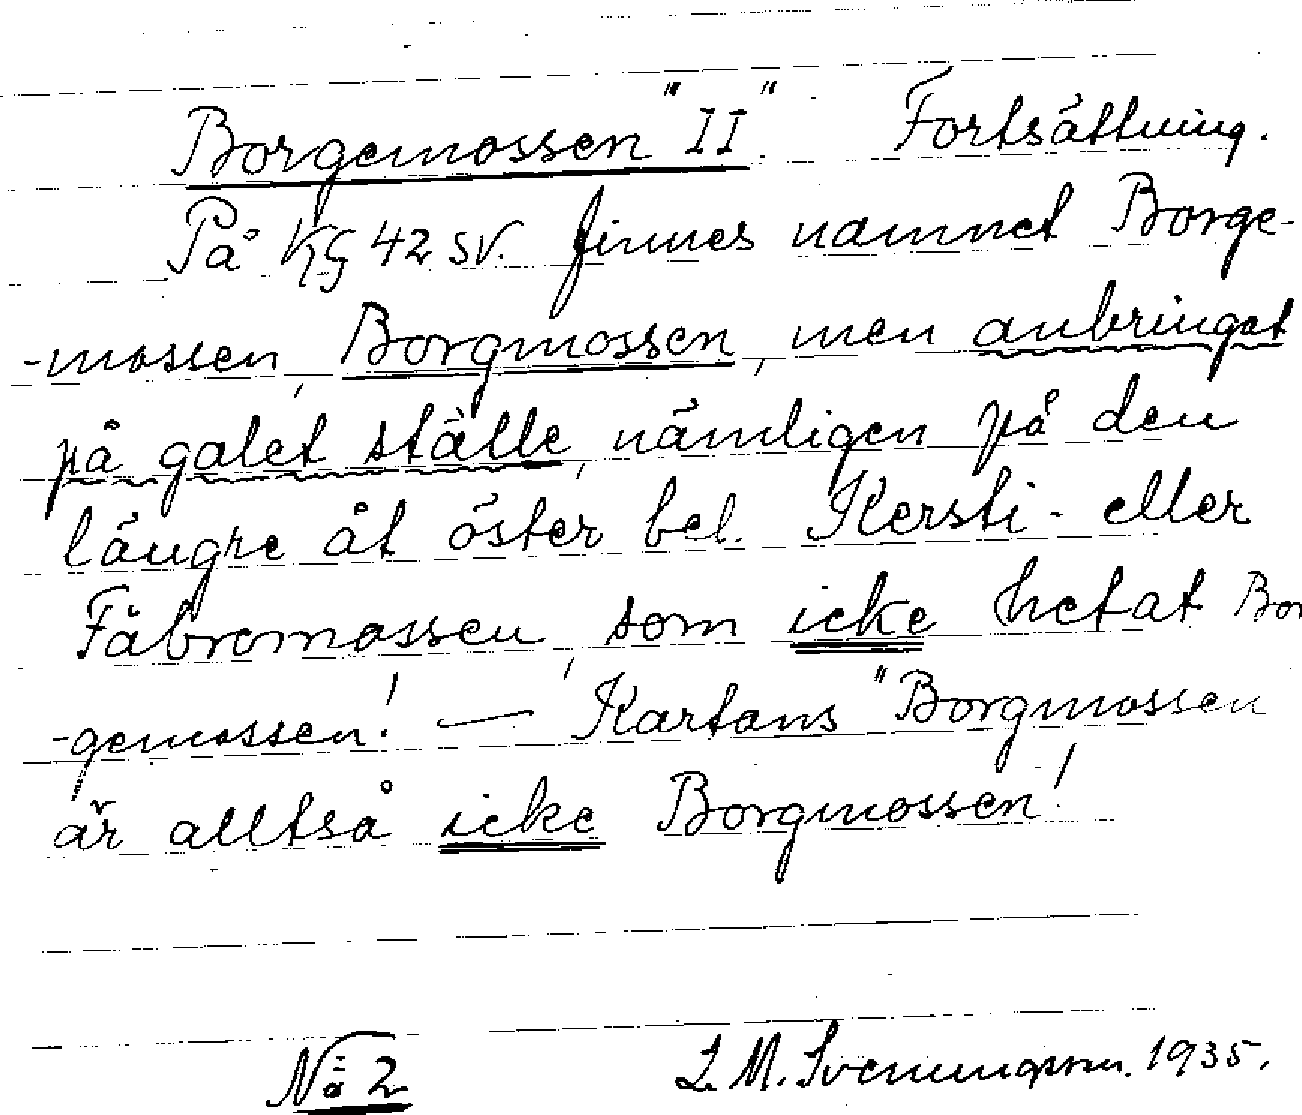 Borgemossen "II". Fortsättning.
På KG 42 SV. finnes namnet Borge-
-mossen, Borgmossen, men anbringat
på galet ställe, nämligen på den
längre åt öster bel. Kersti- eller
Fäbromossen, som icke hetat Bor
-gemossen! — Kartans "Borgmossen
är alltså icke Borgmossen!
No 2 L. M. Svenungsson. 1935.